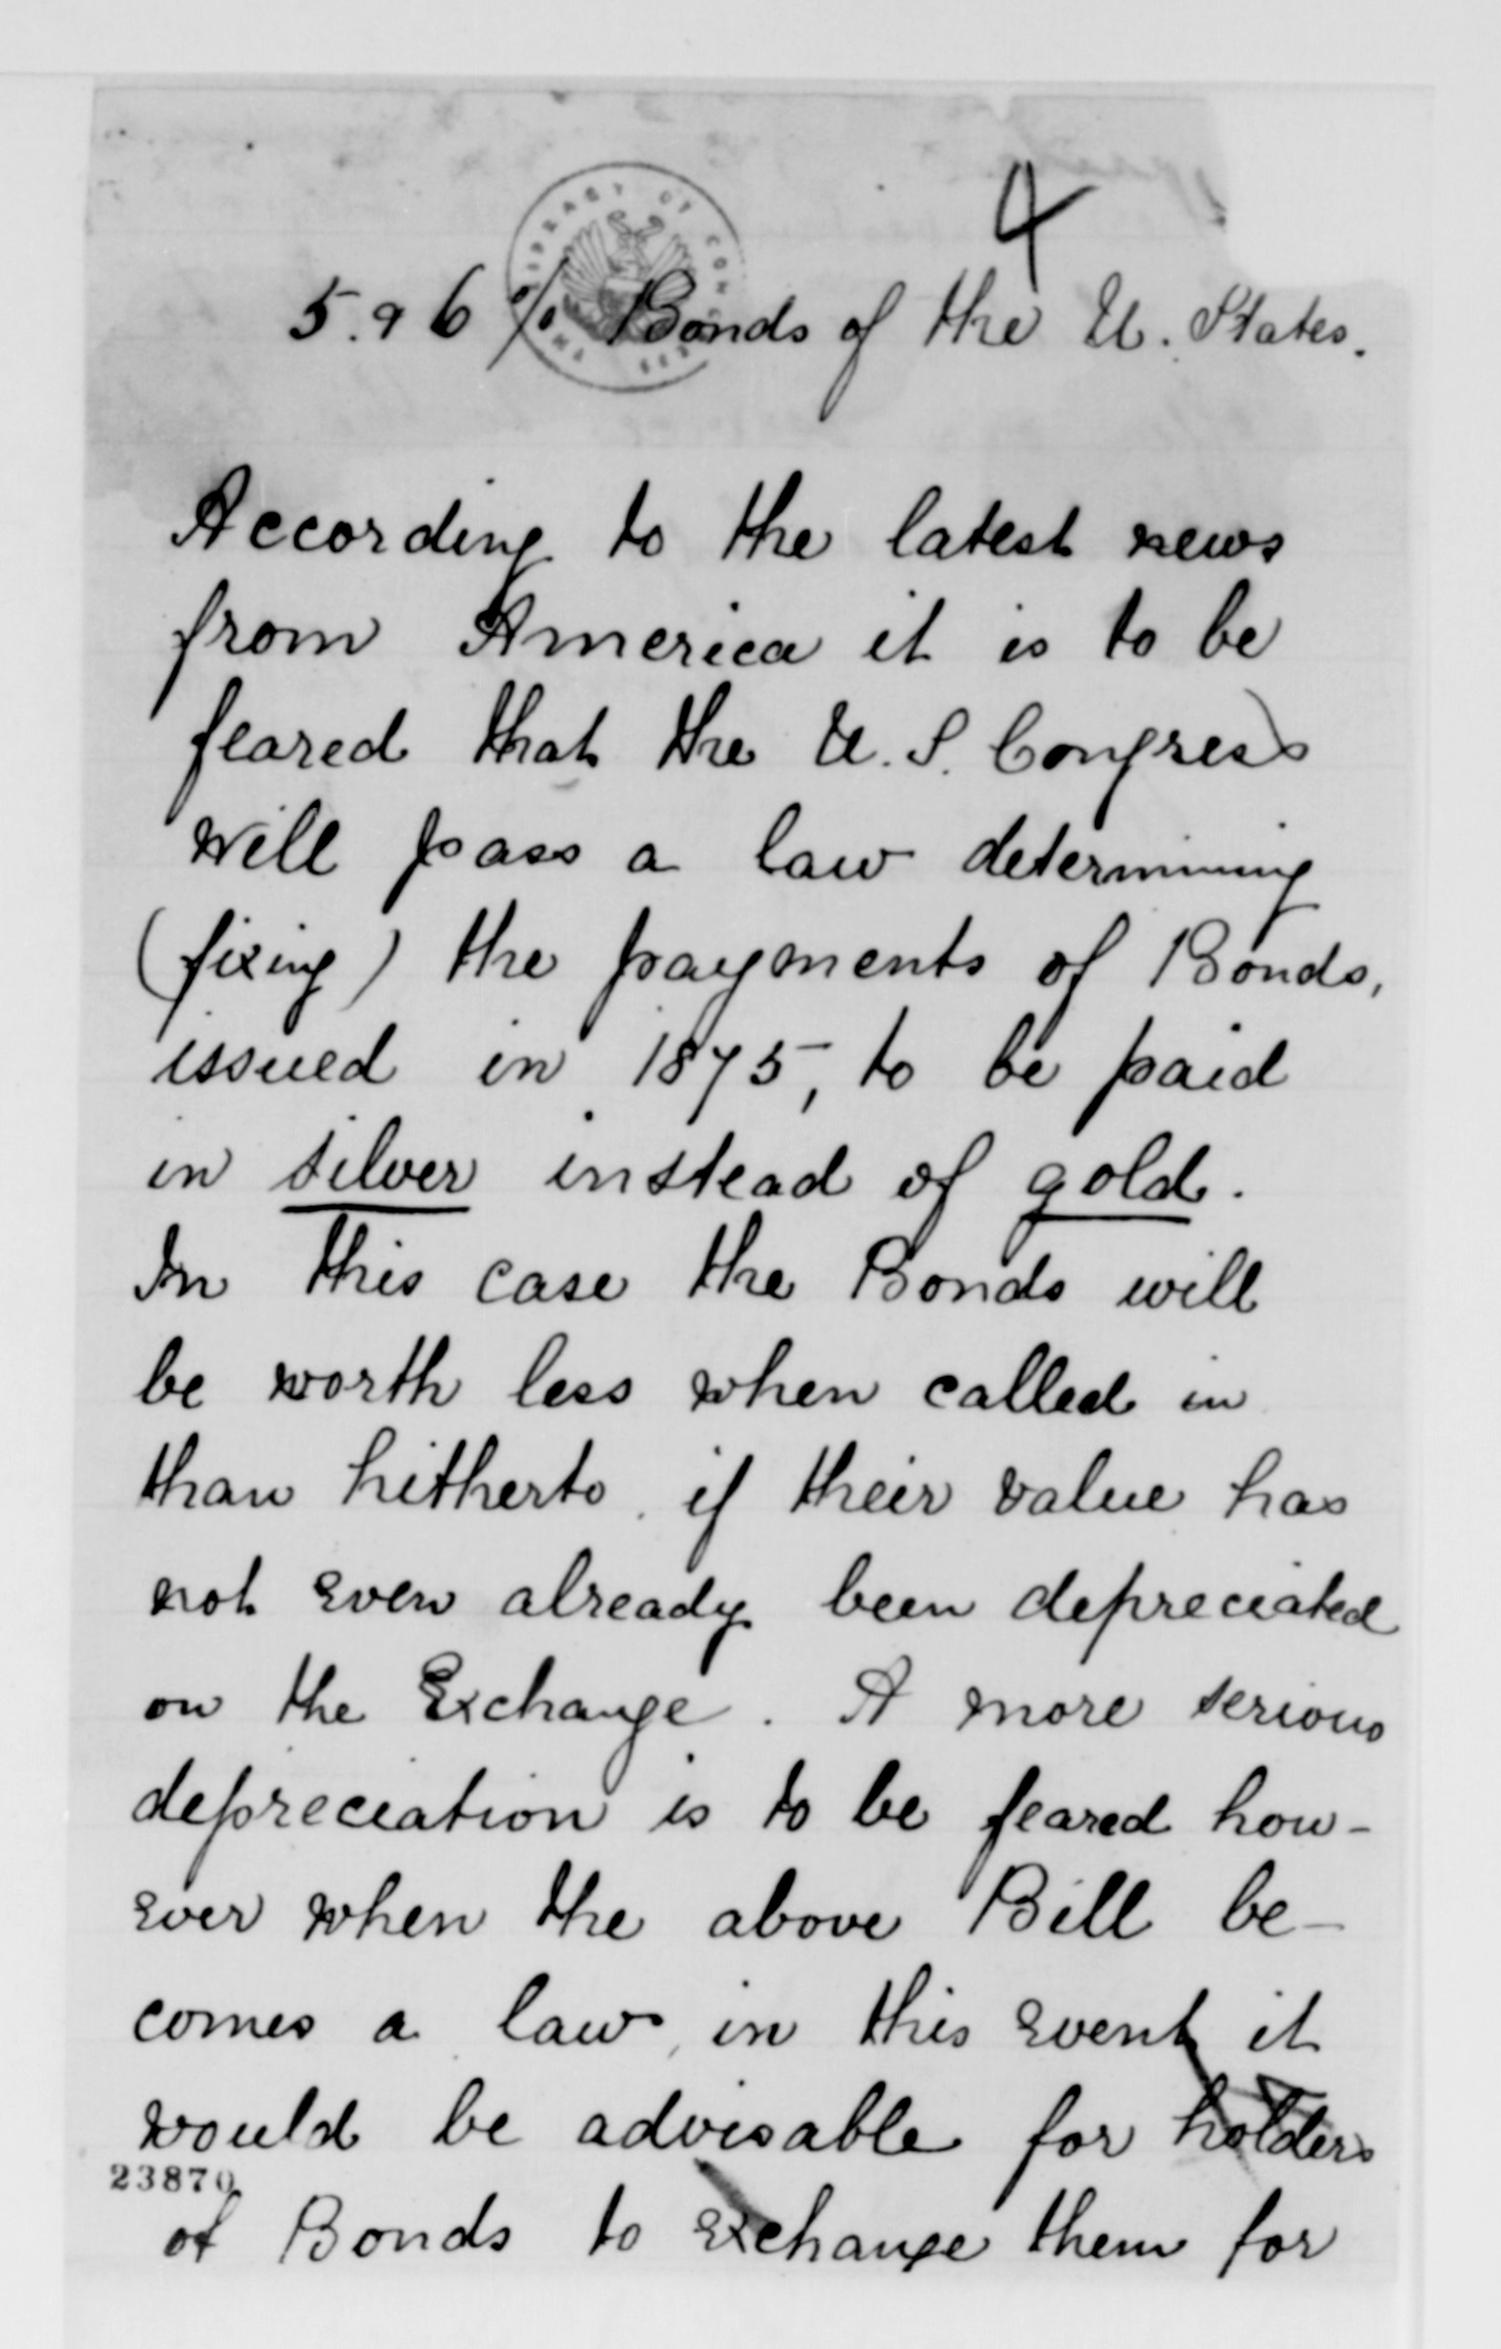 4
5. & 6 % Bonds of the U. States.
According to the latest news
from America it is to be
feared that the U. S. Congress
will pass a law determining
(fixing) the payments of Bonds,
issued in 1875, to be paid
in silver instead of gold.
In this case the Bonds will
be worth less when called in
than hitherto, if their value has
not even already been depreciated
on the Exchange. A more serious
depreciation is to be feared how-
ever when the above Bill be-
comes a law, in this event it
would be advisable for holders
23870
of Bonds to exchange them for